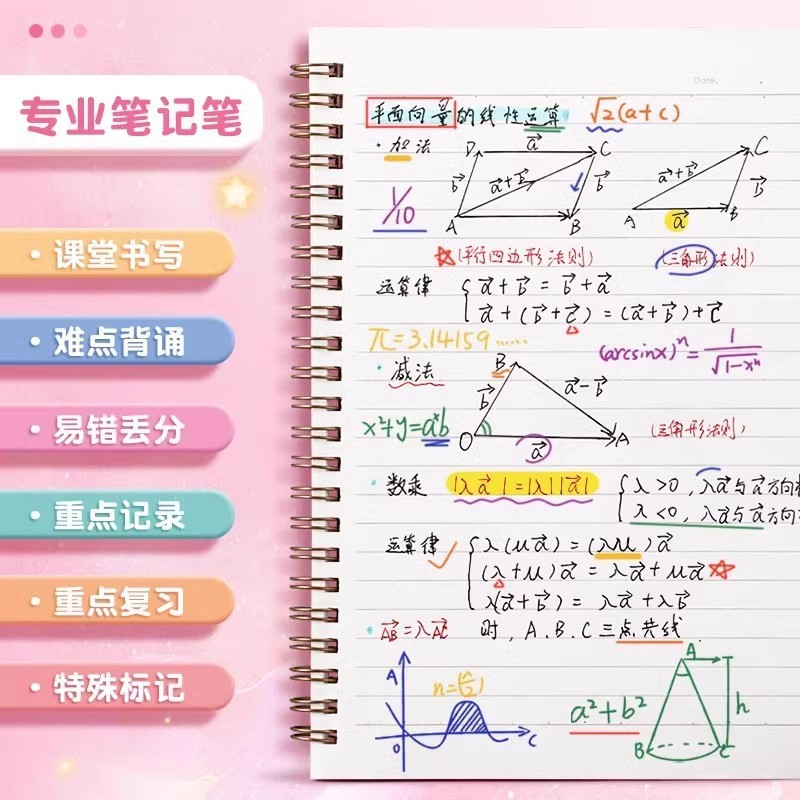 专业笔记笔
• 课堂书写
• 难点背诵
• 易错丢分
• 重点记录
• 重点复习
• 特殊标记
Date.
平面向量的线性运算 √2(a+c)
• 加法
D a⃗ C
b⃗ a⃗+b⃗ b⃗
A B
1/10
C
a⃗+b⃗ b⃗
A a⃗ B
☆(平行四边形法则) (三角形法则)
运算律 { a⃗+b⃗=b⃗+a⃗
a⃗+(b⃗+c⃗)=(a⃗+b⃗)+c⃗
π=3.14159……
(arcsinx)ⁿ=1/√1-xⁿ
• 减法
B
b⃗ a⃗-b⃗
O a⃗ A
(三角形法则)
x²+y=aˣb
• 数乘 |λa⃗|=|λ||a⃗| { λ>0, λa⃗与a⃗方向
λ<0, λa⃗与a⃗方向
运算律 { λ(μa⃗)=(λμ)a⃗
(λ+μ)a⃗=λa⃗+μa⃗☆
λ(a⃗+b⃗)=λa⃗+λb⃗
• AB⃗=λAC⃗ 时, A.B.C三点共线.
A
O C
a²+b²
A
h
B C